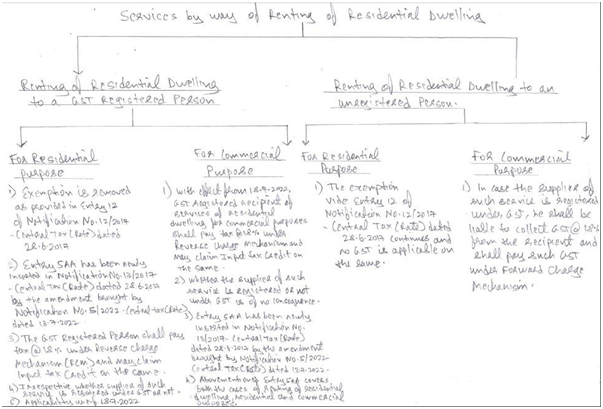 Services by way of Renting of Residential Dwelling
Renting of Residential Dwelling
to a GST Registered Person
Renting of Residential Dwelling to an
unregistered Person.
For Residential
Purpose
1) Exemption is removed
as provided in Entry 12
of Notification No. 12/2017
- Central Tax (Rate) dated
28.6.2017
2) Entry 5AA has been newly
inserted in Notification No. 13/2017
- Central Tax (Rate) dated 28.6.2017
by the amendment brought by
Notification No. 5/2022 - Central Tax (Rate)
dated 13.7.2022
3) The GST Registered Person shall pay
tax @ 18% under Reverse Charge
Mechanism (RCM) and may claim
Input tax Credit on the same.
4) Irrespective whether supplier of such
service is registered under GST or not.
5) Applicability w.e.f. 18.7.2022
For Commercial
Purpose
1) With effect from 18.7.2022,
GST registered recipient of
services of residential
dwelling for commercial purposes
shall pay tax @ 18% under
Reverse Charge Mechanism and
may claim Input tax Credit on
the same.
2) Whether the supplier of such
service is registered or not
under GST is of no consequence.
3) Entry 5AA has been newly
inserted in Notification No.
13/2017- Central Tax (Rate)
dated by the amendment
brought by Notification No. 5/2022
- Central Tax (Rate) dated 13.7.2022.
4) Abovementioned Entry 5AA covers
both the cases of renting of residential
dwelling, residential and commercial
purposes.
For Residential
Purpose
1) The exemption
vide Entry 12 of
Notification No. 12/2017
- Central Tax (Rate) dated
28.6.2017 continues and
no GST is applicable on
the same.
For Commercial
Purpose
1) In case the supplier of
such service is registered
under GST, he shall be
liable to collect GST @ 18%
from the recipient and
shall pay such GST
under Forward Charge
Mechanism.